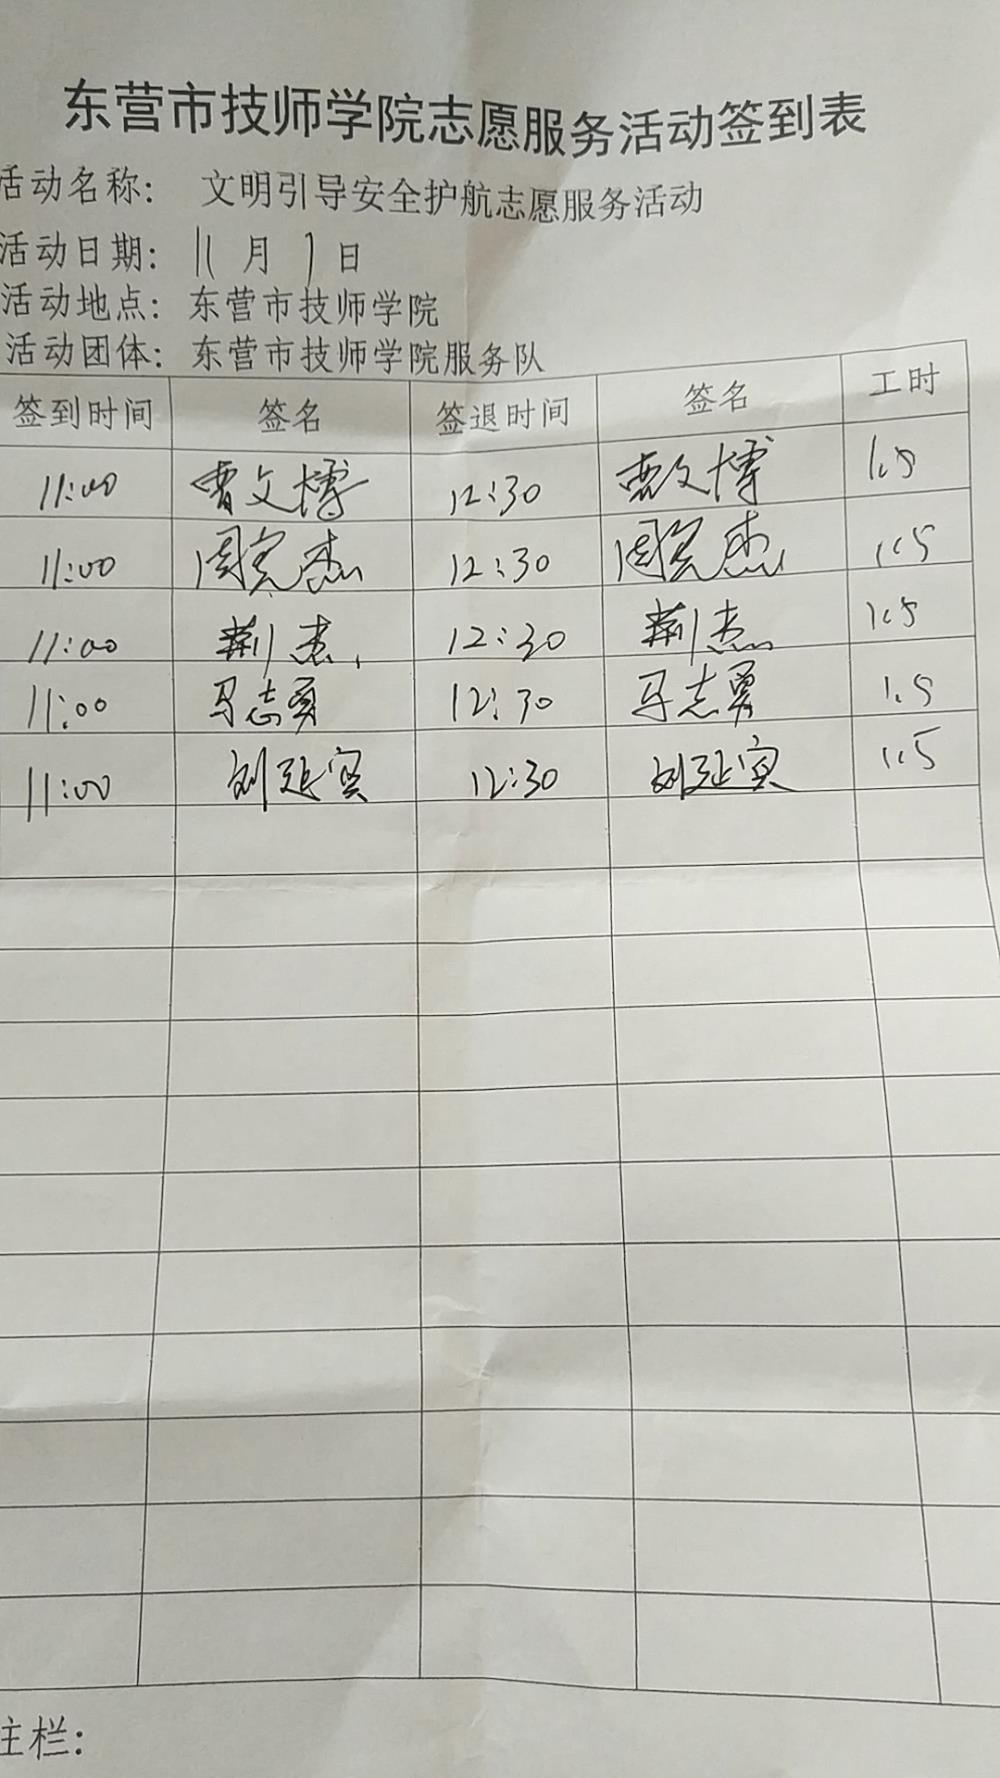 东营市技师学院志愿服务活动签到表
活动名称： 文明引导安全护航志愿服务活动
活动日期： 11 月 7 日
活动地点： 东营市技师学院
活动团体： 东营市技师学院服务队
签到时间 签名 签退时间 签名 工时
11:00 曹文博 12:30 曹文博 1.5
11:00 周宪杰 12:30 周宪杰 1.5
11:00 荆杰 12:30 荆杰 1.5
11:00 马志勇 12:30 马志勇 1.5
11:00 刘延宾 12:30 刘延宾 1.5
注栏：